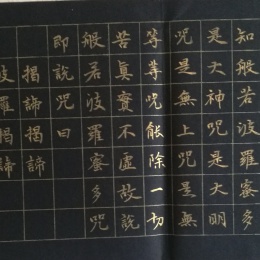 知般若波羅蜜多
是大神咒是大明
咒是無上咒是無
等等咒能除一切
苦眞實不虛故說
般若波羅蜜多咒
即說咒曰
揭諦揭諦
波羅揭諦